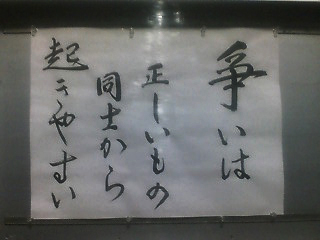 争いは
正しいもの
同士から
起きやすい